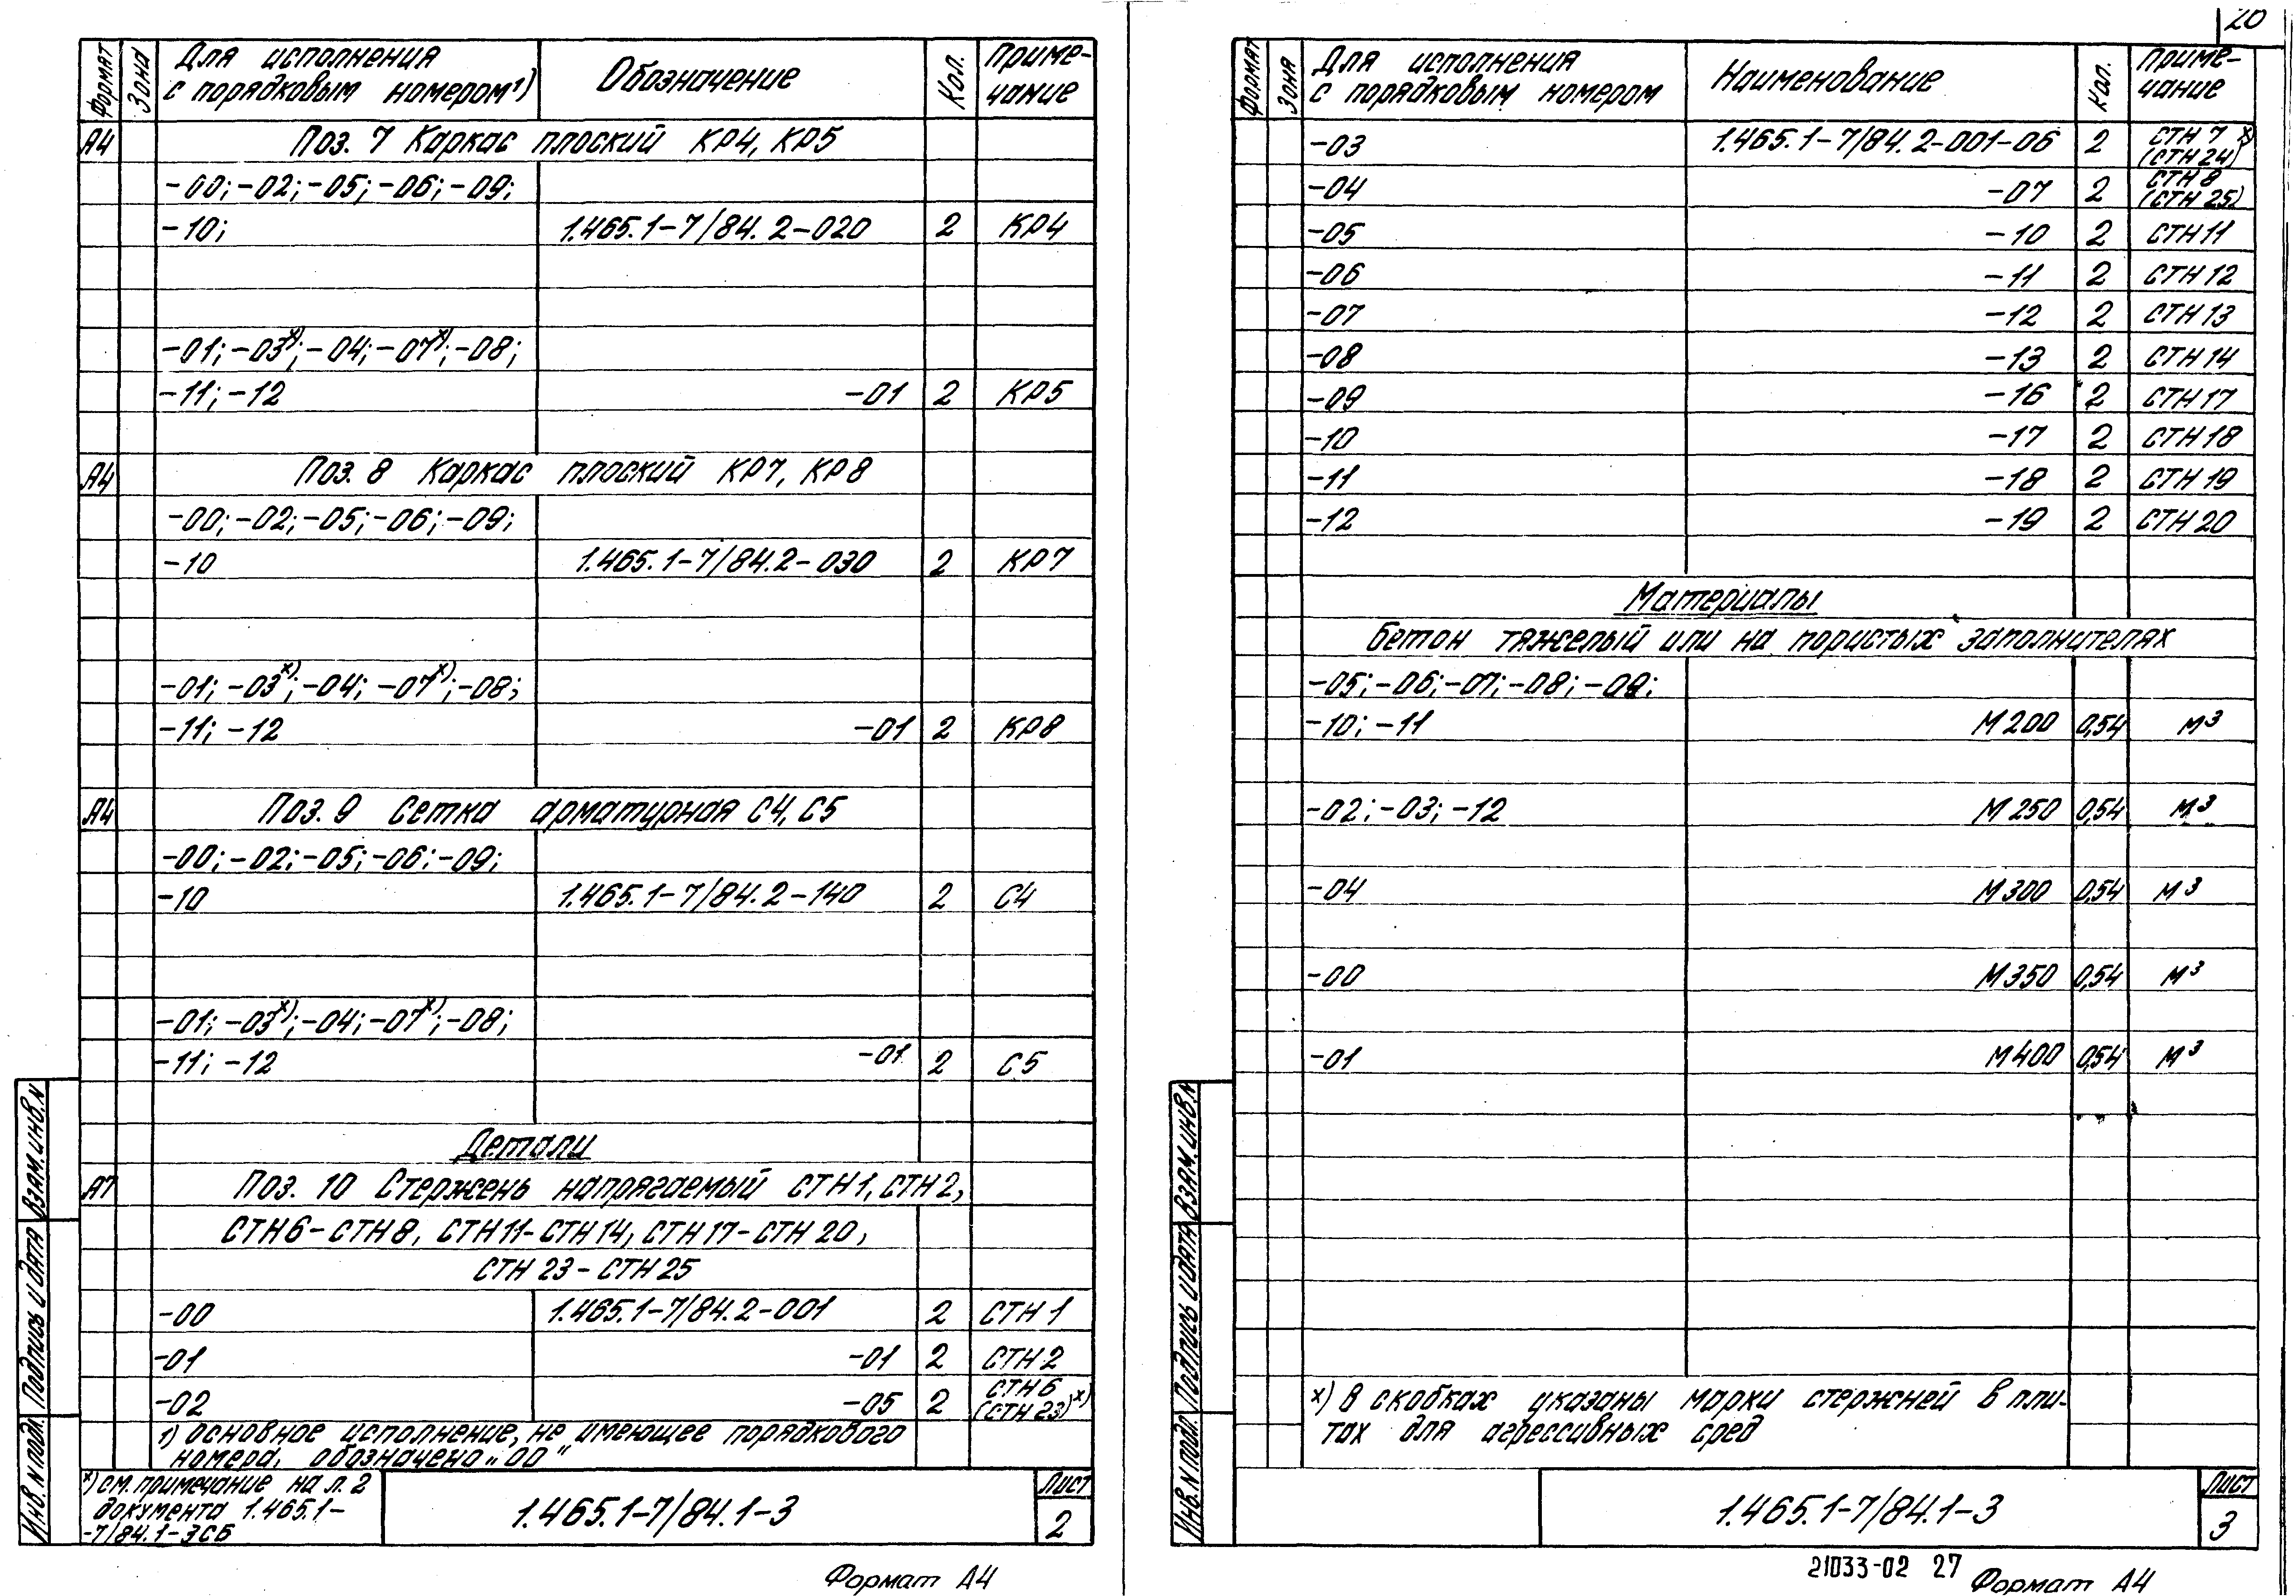 20
Формат
Зона
Для исполнения
с порядковым номером¹⁾
Обозначение
Кол.
Приме-
чание
А4 Поз. 7 Каркас плоский КР4, КР5
-00; -02; -05; -06; -09;
-10; 1.465.1-7/84.2-020 2 КР4
-01; -03ˣ⁾; -04; -07ˣ⁾; -08;
-11; -12 -01 2 КР5
А4 Поз. 8 Каркас плоский КР7, КР8
-00; -02; -05; -06; -09;
-10 1.465.1-7/84.2-030 2 КР7
-01; -03ˣ⁾; -04; -07ˣ⁾; -08;
-11; -12 -01 2 КР8
А4 Поз. 9 Сетка арматурная С4, С5
-00; -02; -05; -06; -09;
-10 1.465.1-7/84.2-140 2 С4
-01; -03ˣ⁾; -04; -07ˣ⁾; -08;
-11; -12 -01 2 С5
Детали
А7 Поз. 10 Стержень напрягаемый СТН1, СТН2,
СТН6-СТН8, СТН11-СТН14, СТН17-СТН20,
СТН23-СТН25
-00 1.465.1-7/84.2-001 2 СТН1
-01 -01 2 СТН2
-02 -05 2 СТН6
(СТН23)ˣ⁾
1) Основное исполнение, не имеющее порядкового
номера, обозначено „00"
х) см. примечание на л. 2
документа 1.465.1-
-7/84.1-3СБ
1.465.1-7/84.1-3
Лист
2
Инв. N подл. Подпись и дата Взам. инв. N
Формат А4
Формат
Зона
Для исполнения
с порядковым номером
Наименование
Кол.
Приме-
чание
-03 1.465.1-7/84.2-001-06 2 СТН7 ˣ⁾
(СТН24)
-04 -07 2 СТН8
(СТН25)
-05 -10 2 СТН11
-06 -11 2 СТН12
-07 -12 2 СТН13
-08 -13 2 СТН14
-09 -16 2 СТН17
-10 -17 2 СТН18
-11 -18 2 СТН19
-12 -19 2 СТН20
Материалы
Бетон тяжелый или на пористых заполнителях
-05; -06; -07; -08; -09;
-10; -11 М200 0,54 м³
-02; -03; -12 М250 0,54 м³
-04 М300 0,54 м³
-00 М350 0,54 м³
-01 М400 0,54 м³
х) В скобках указаны марки стержней в пли-
тах для агрессивных сред
1.465.1-7/84.1-3
Лист
3
Инв. N подл. Подпись и дата Взам. инв. N
21033-02 27
Формат А4